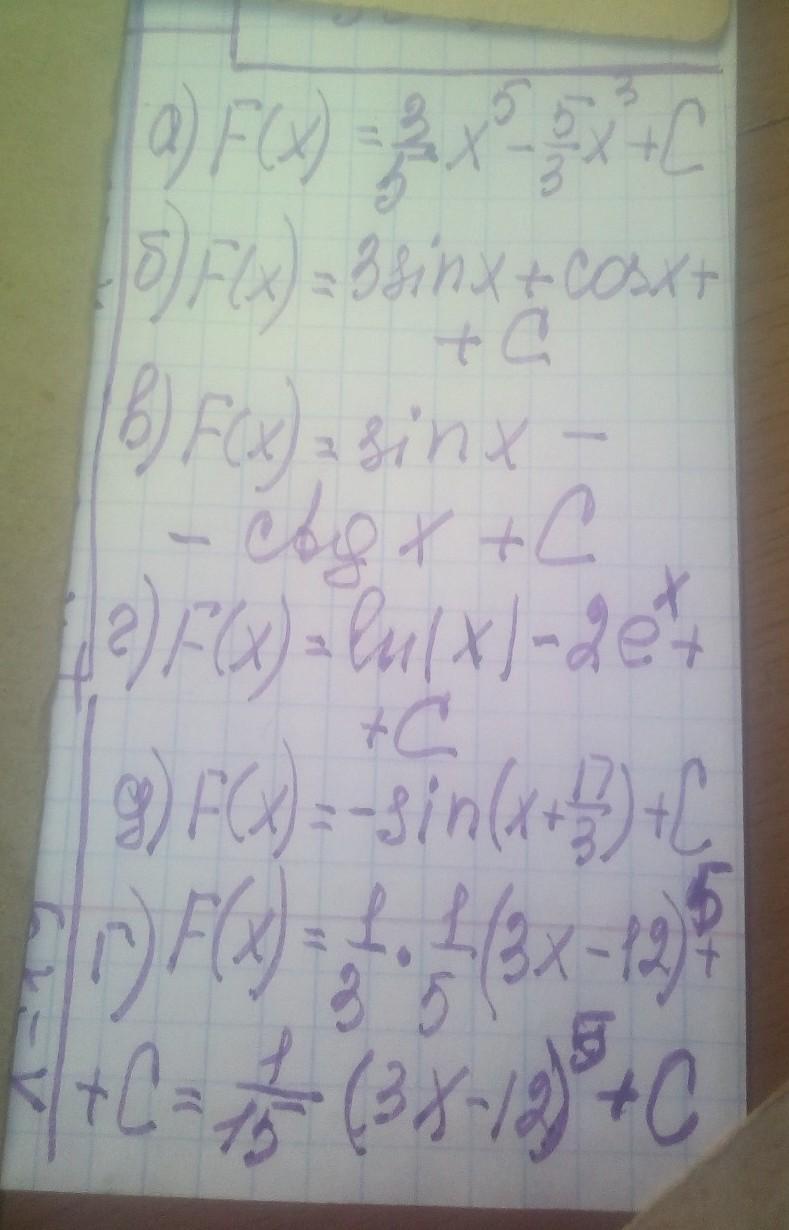 а) F(x) = 3/5 x⁵ - 5/3 x³ + C
б) F(x) = 3sinx + cosx +
+ C
в) F(x) = sinx -
- ctgx + C
г) F(x) = ln|x| - 2eˣ +
+ C
д) F(x) = -sin(x + π/3) + C
г) F(x) = 1/3 · 1/5 (3x - 12)⁵ +
+ C = 1/15 (3x - 12)⁵ + C